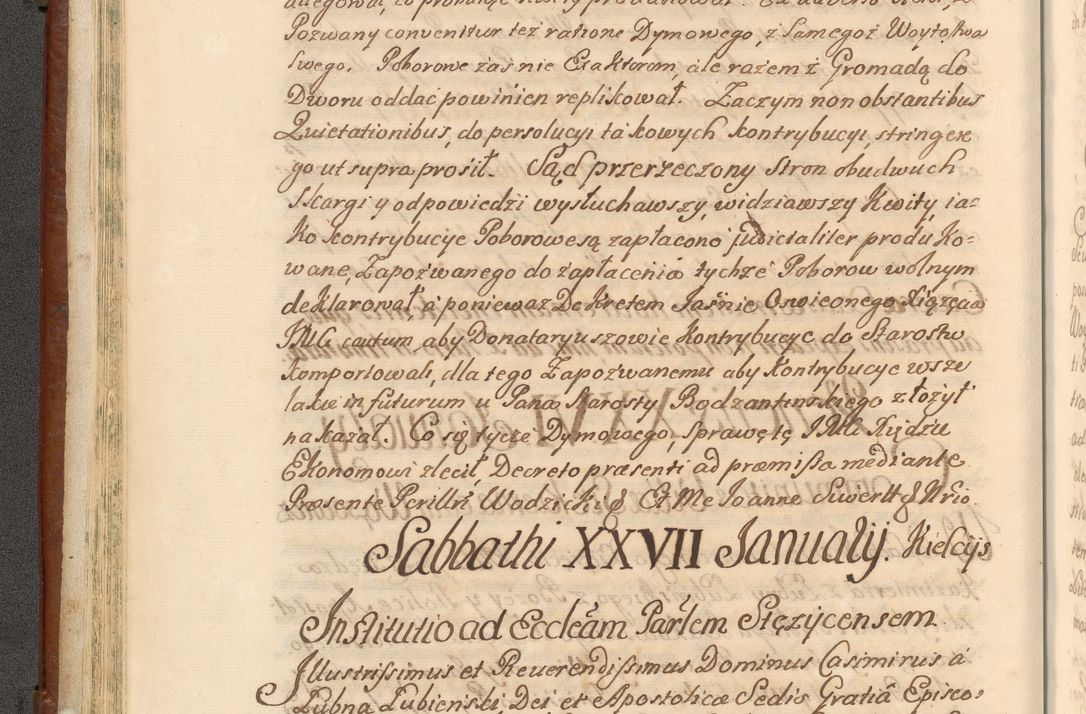 allegował, co probuiąc kwity produkował. Ex adverso Actor, że
Pozwany convenitur też ratione Dymowego, z samegoż Woytostwa
swego. Poborowe zaś nie Exaktorom, ale razem z Gromadą do
Dworu oddać powinien replikował. Zaczym non obstantibus
Quietationibus, do persolucyi takowych kontrybucyi, stringere
go ut supra prosił. Sąd przerzeczony stron obudwuch
skargi y odpowiedzi wysłuchawszy, widziawszy Kwity, ia-
ko kontrybucye Poborowe są zapłacono judicialiter produko-
wane, Zapozwanego do zapłacenia tychże Poborow wolnym
deklarował, a ponieważ Dekretem Jaśnie Oswieconego Xiążęcia
JMC cautum, aby Donataryuszowie kontrybucye do Starostw
komportowali, dla tego Zapozwanemu aby kontrybucye wsze
lakie in futurum u Pana Starosty Bodzantinskiego złożył
nakazał. Co się tycze Dymowego, sprawę tę JMC Xiędzu
Ekonomowi zlecił, Decreto præsenti ad præmissa mediante.
Præsente Perillri Wodzicki & Et Me Joanne Suwertt & Nrio
Sabbathi XXVII Januarij. Kielcijs
Institutio ad Eccleam Parlem Stęzycensem
Illustrissimus et Reuerendissimus Dominus Casimirus á
Lubna Łubienski Dei et Apostolicæ Sedis Gratia Episco-